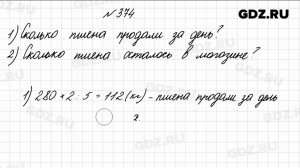 GDZ.RU
№ 374
1) Сколько пшена продали за день?
2) Сколько пшена осталось в магазине?
1) 280 * 2 : 5 = 112 (кг) - пшена продали за день
х
GDZ.RU